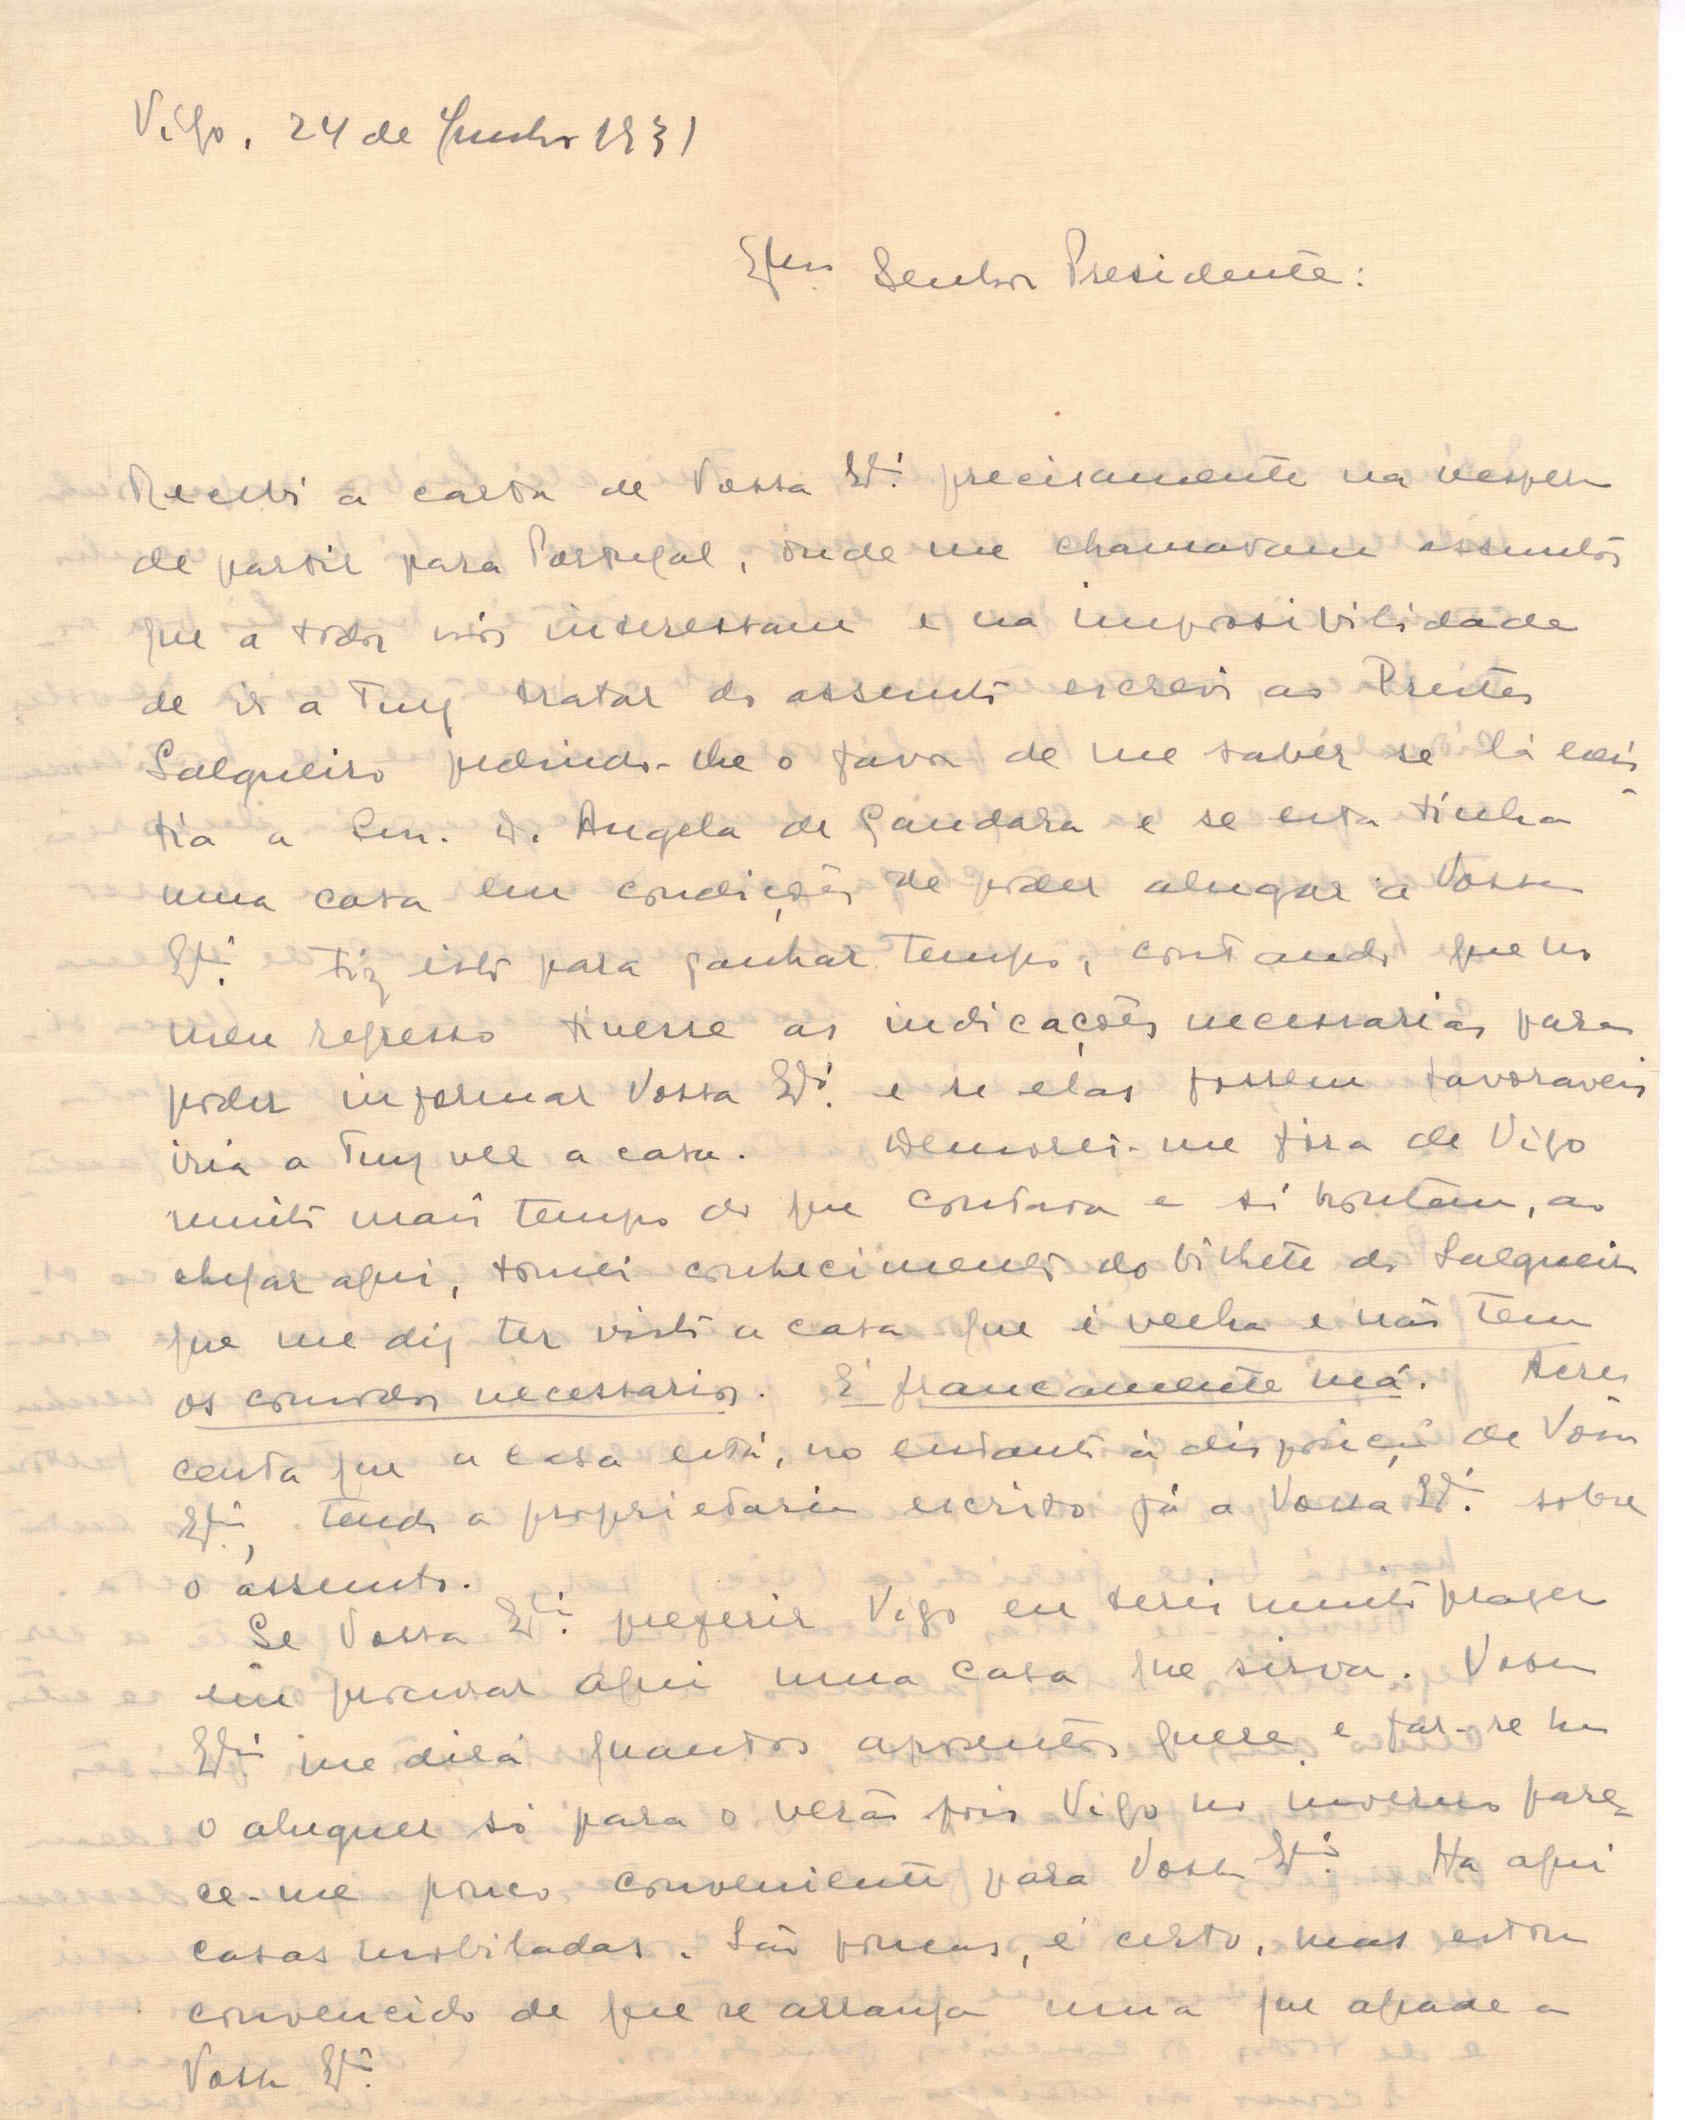 Vigo, 24 de Junho 1931
Exmo Senhor Presidente:
Recebi a carta de Vossa Exª. precisamente na vespera
de partir para Portugal, onde me chamavam assuntos
que a todos nós interessam e na impossibilidade
de ir a Tuy tratar do assunto escrevi ao Prestes
Salgueiro pedindo-lhe o favor de me saber se lá exis
tia a Snra. D. Angela de Gandara e se esta tinha
uma casa em condições de poder alugar a Vossa
Exª. Fiz isto para ganhar tempo, contando que no
meu regresso tivesse as indicações necessarias para
poder informar Vossa Exª. e se elas fossem favoraveis
iria a Tuy ver a casa. Demorei-me fora de Vigo
muito mais tempo do que contava e só hontem, ao
chegar aqui, tomei conhecimento do bilhete do Salgueiro
que me diz ter visto a casa que é velha e não tem
os comodos necessarios. É francamente má. Acres
centa que a casa está, no entanto à disposição de Vossa
Exª., tendo a proprietaria escrito já a Vossa Exª. sobre
o assunto.
Se Vossa Exª. preferir Vigo eu terei muito prazer
em procurar aqui uma casa que sirva. Vossa
Exª me dirá quantos aposentos quere e far-se ha
o aluguer só para o verão pois Vigo no inverno pare-
ce-me pouco conveniente para Vossa Exª. Ha aqui
casas mobiladas. São poucas, é certo, mas estou
convencido de que se arranja uma que agrade a
Vossa Exª.